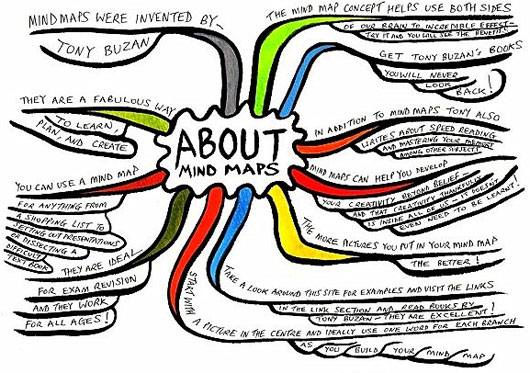 ABOUT
MIND MAPS
MINDMAPS WERE INVENTED BY
TONY BUZAN
THE MIND MAP CONCEPT HELPS USE BOTH SIDES
OF OUR BRAIN TO INCREDIBLE EFFECT-
TRY IT AND YOU WILL SEE THE BENEFITS
GET TONY BUZAN'S BOOKS
YOU WILL NEVER
LOOK
BACK!
IN ADDITION TO MINDMAPS TONY ALSO
WRITES ABOUT SPEED READING
AND MASTERING YOUR MEMORY
AMONG OTHER SUBJECTS!
MIND MAPS CAN HELP YOU DEVELOP
YOUR CREATIVITY BEYOND BELIEF -
AND THAT CREATIVITY THANKFULLY
IS INSIDE ALL OF US - IT DOESN'T
EVEN NEED TO BE LEARNT!
THE MORE PICTURES YOU PUT IN YOUR MIND MAP
THE BETTER!
TAKE A LOOK AROUND THIS SITE FOR EXAMPLES AND VISIT THE LINKS
IN THE LINK SECTION AND READ BOOKS BY
TONY BUZAN - THEY ARE EXCELLENT!
START WITH A PICTURE IN THE CENTRE AND IDEALLY USE ONE WORD FOR EACH BRANCH
AS YOU BUILD YOUR MIND MAP
THEY ARE IDEAL
FOR EXAM REVISION
AND THEY WORK
FOR ALL AGES!
YOU CAN USE A MIND MAP
FOR ANYTHING FROM
A SHOPPING LIST TO
SETTING OUT PRESENTATIONS
OR DISSECTING A
DIFFICULT
TEXT BOOK
THEY ARE A FABULOUS WAY
TO LEARN,
PLAN, AND CREATE